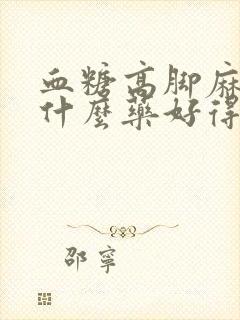 血糖高脚麻
什麼藥好得
邵寧